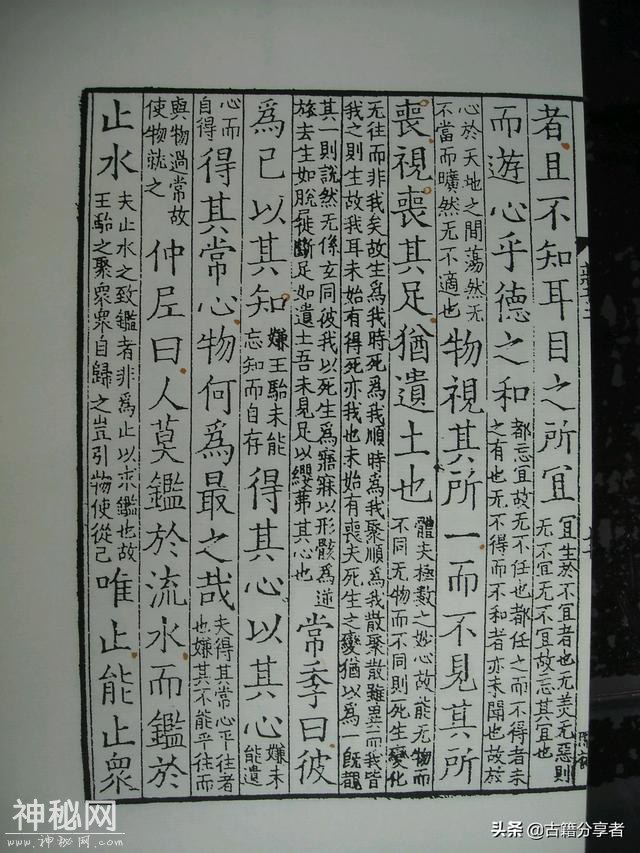 者且不知耳目之所宜宜生於不宜者也无美无惡則无不宜无不宜故忘其宜也
而遊心乎德之和都忘宜故无不任也都任之而不得者未之有也无不得而不和者亦未聞也故放
心於天地之間蕩然无不當而曠然无不適也物視其所一而不見其所
喪視喪其足猶遺土也體夫極數之妙心故能无物而不同无物而不同則死生變化
无往而非我矣故生爲我時死爲我順時爲我聚順爲我散聚散雖異而我皆我之則生故我耳未始有得死亦我也未始有喪夫死生之變猶以爲一既覩
其一則說然无係玄同彼我以死生爲寤寐以形骸爲逆旅去生如脫屣斷足如遺土吾未見足以纓茀其心也常季曰彼
爲己以其知嫌王駘未能忘知而自存得其心以其心嫌未能遺
心而自得得其常心物何爲最之哉夫得其常心平往者也嫌其不能平往而
與物過常故使物就之仲尼曰人莫鑑於流水而鑑於
止水夫止水之致鑑者非爲止以求鑑也故王駘之聚衆衆自歸之豈引物使從己唯止能止衆
神秘网
www.神秘网.com
头条 @古籍分享者